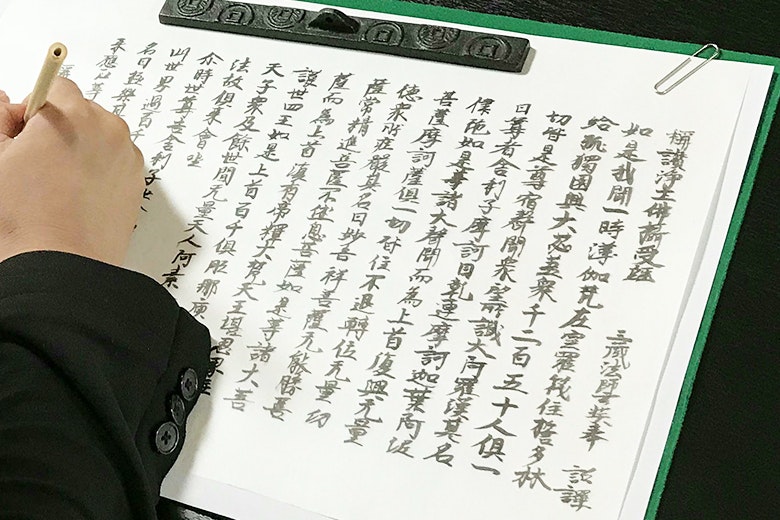 稱讚淨土佛攝受經
三藏法師玄奘奉 詔譯
如是我聞一時薄伽梵在室羅筏住誓多林
給孤獨園與大苾芻眾千二百五十人俱一
切皆是尊宿聲聞眾望所識大阿羅漢其名
曰尊者舍利子摩訶目乾連摩訶迦葉阿泥
律陀如是等諸大聲聞而為上首復與无量
菩薩摩訶薩俱一切皆住不退轉位无量功
德眾所莊嚴其名曰妙吉祥菩薩无能勝菩
薩常精進菩薩不休息菩薩如是等諸大菩
薩而為上首復有帝釋大梵天王堪忍界主
護世四王如是上首百千俱胝那庾
天子眾及餘世間无量天人阿素
法故俱來會坐
尒時世尊告舍利子汝
此世界過百千
名曰極樂
來應正等